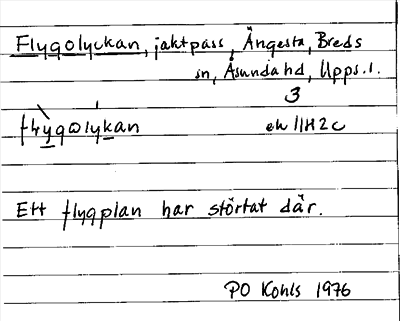 Flygolyckan, jaktpass, Ängesta, Breds
sn, Åsunda hd, Upps. l.
3
ek 11H2c
Ett flygplan har störtat där.
PO Kohls 1976